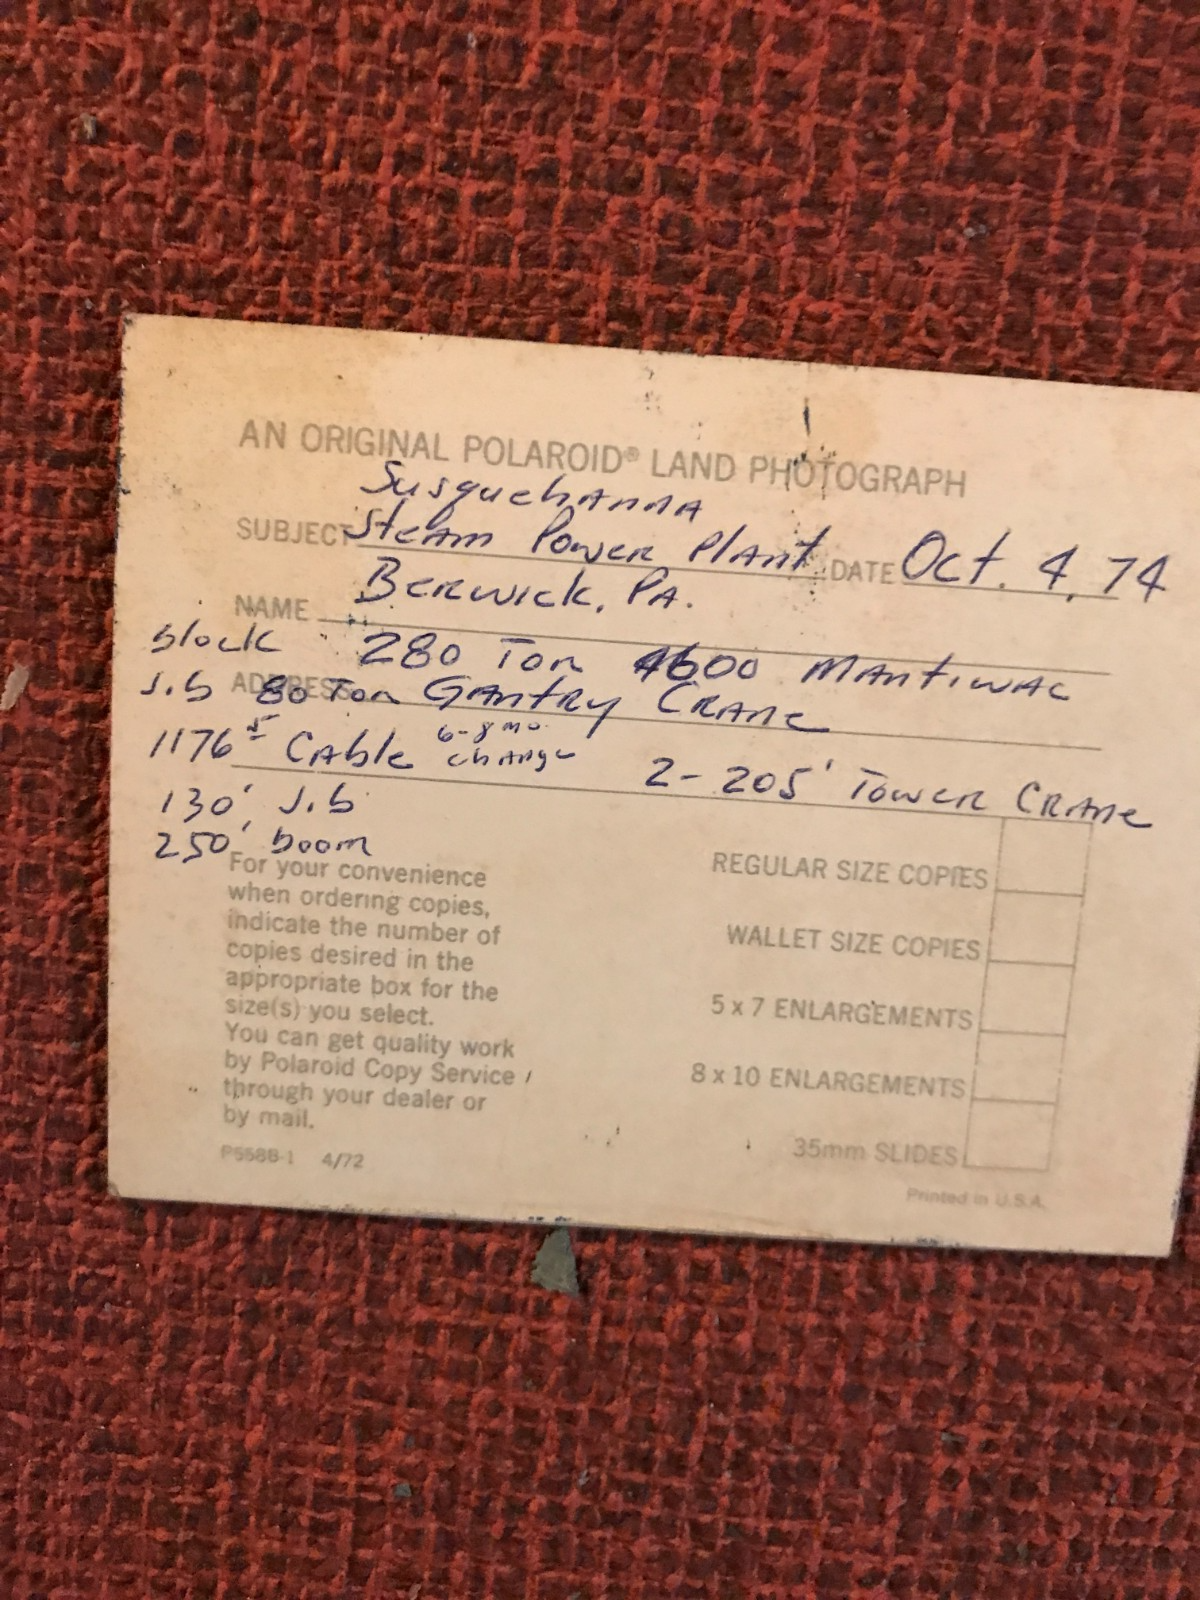 AN ORIGINAL POLAROID® LAND PHOTOGRAPH
Susquehanna
SUBJECT Steam Power Plant DATE Oct. 4, 74
Berwick, PA.
NAME
block 280 Ton 4600 Mantiwac
Jib ADDRESS 80 Ton Gantry Crane
6-8 mo.
1176 Cable change 2-205' Tower Crane
130' Jib
250' boom
For your convenience
when ordering copies,
indicate the number of
copies desired in the
appropriate box for the
size(s) you select.
You can get quality work
by Polaroid Copy Service
through your dealer or
by mail.
P558B-1 4/72
REGULAR SIZE COPIES
WALLET SIZE COPIES
5 x 7 ENLARGEMENTS
8 x 10 ENLARGEMENTS
35mm SLIDES
Printed in U.S.A.